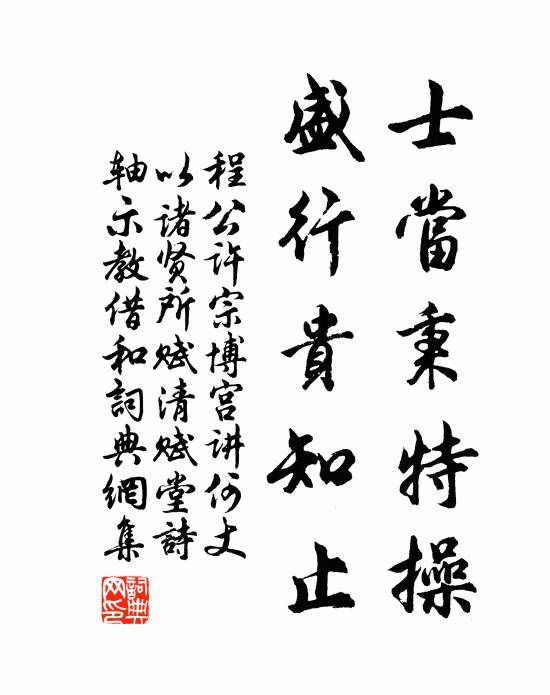 士當秉特操
盛行貴知止
程公许宗博宫讲何丈
以诸贤所赋清赋堂詩
轴示教借和詞典網集
詞典網印